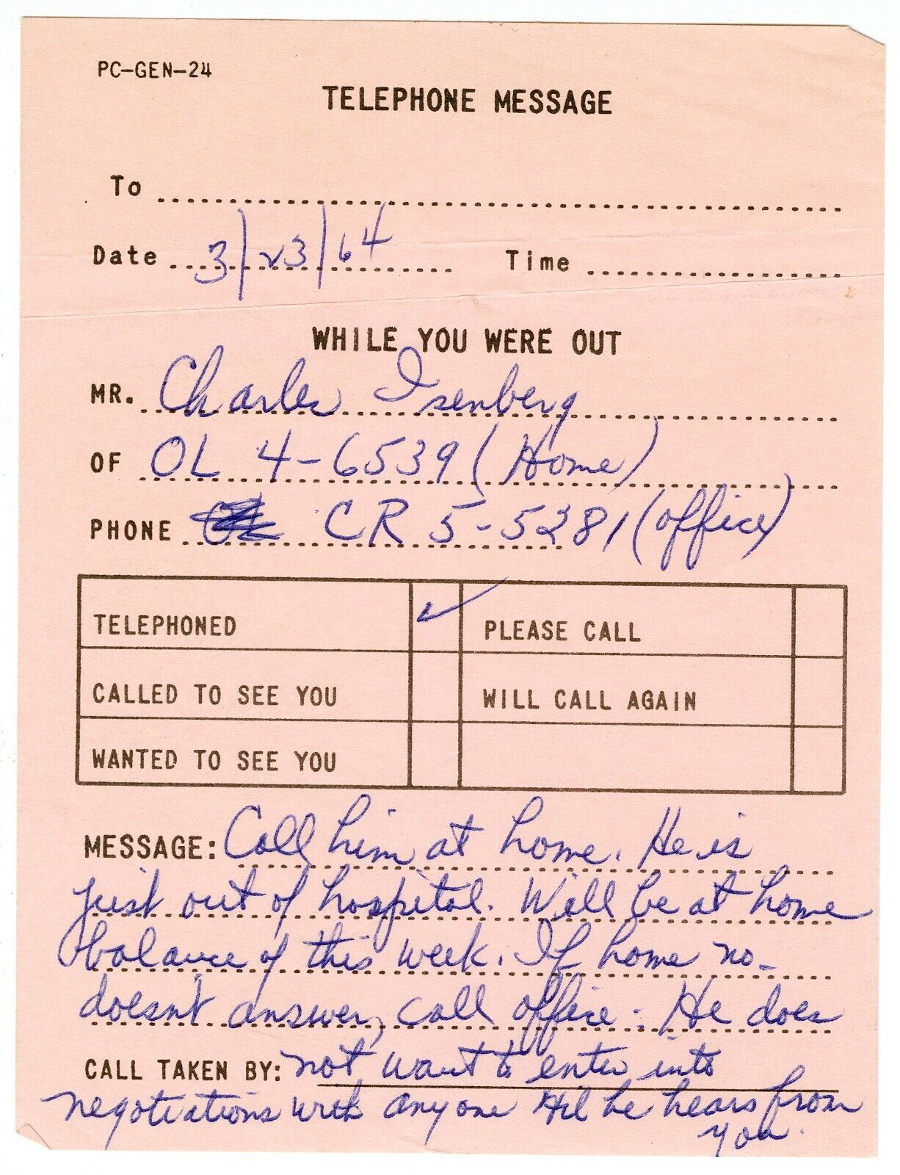 PC-GEN-24
TELEPHONE MESSAGE
To
Date 3/23/64 Time
WHILE YOU WERE OUT
MR. Charles Isenberg
OF OL 4-6539 (Home)
PHONE CR 5-5281 (office)
TELEPHONED ✓ PLEASE CALL
CALLED TO SEE YOU WILL CALL AGAIN
WANTED TO SEE YOU
MESSAGE: Call him at home. He is
just out of hospital. Will be at home
balance of this week. If home no.
doesn't answer, call office. He does
CALL TAKEN BY: not want to enter into
negotiations with anyone til he hears from
you.